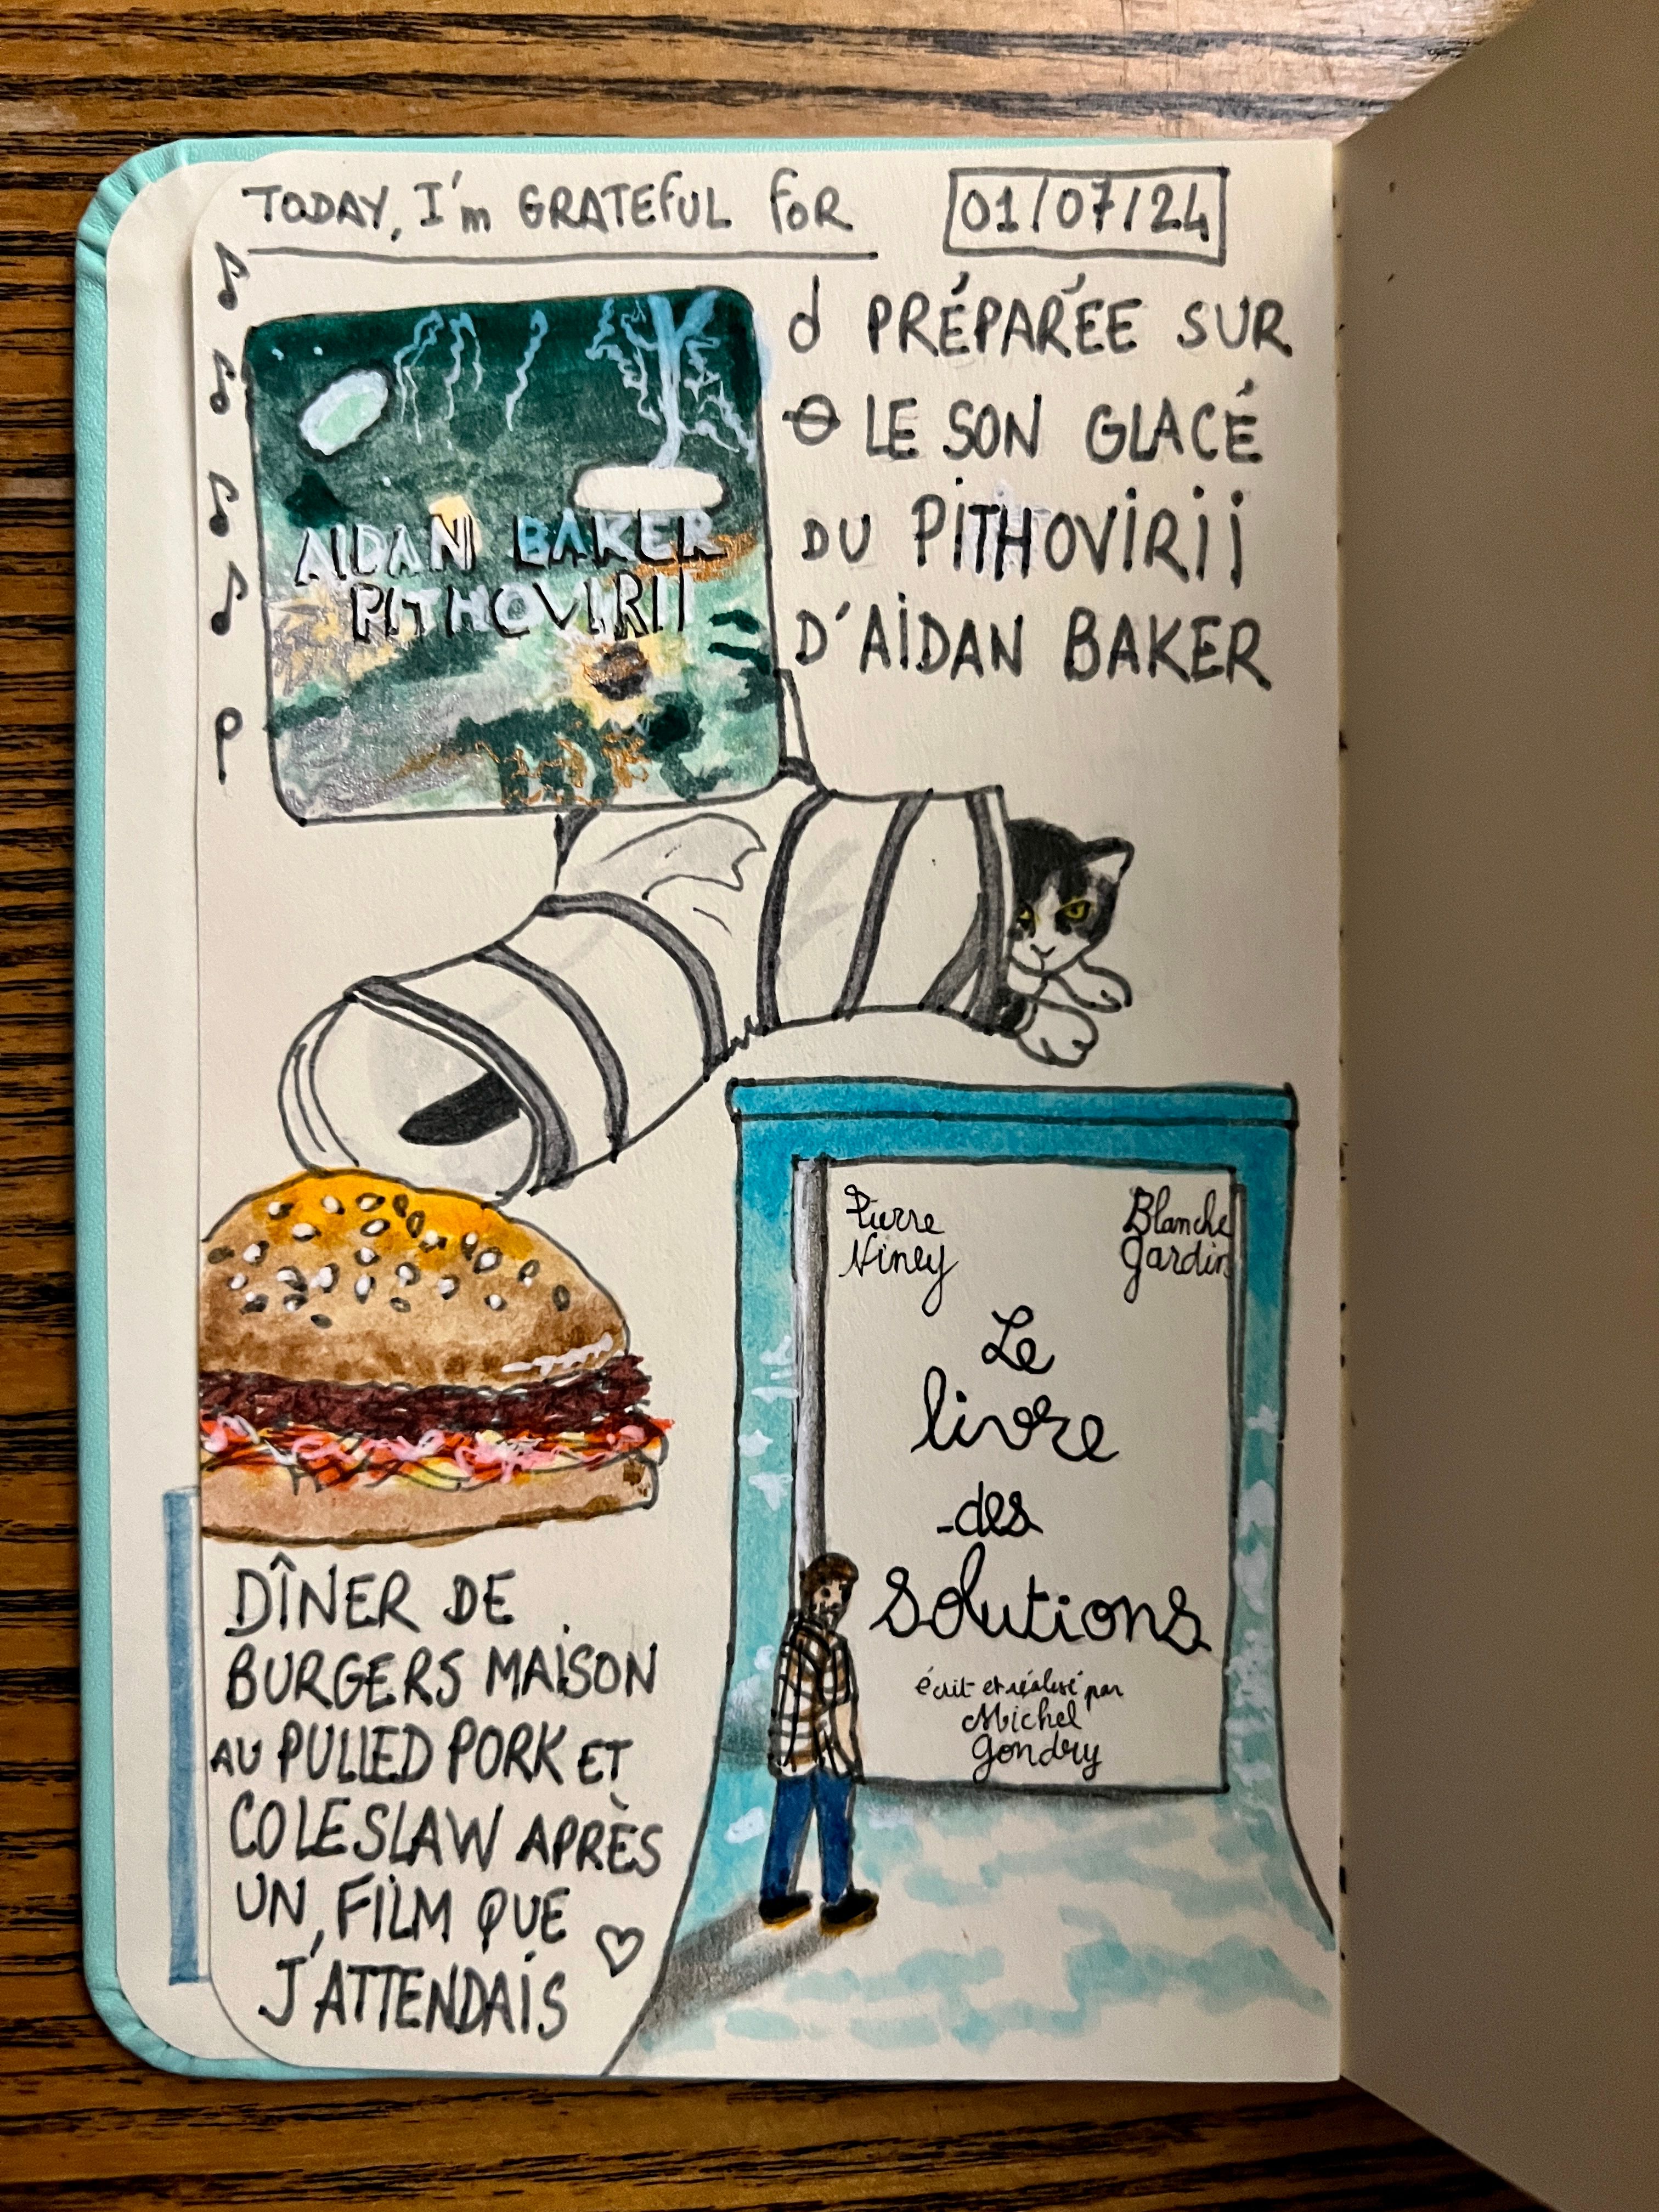 TODAY, I'm GRATEFUL FOR
01/07/24
PRÉPARÉE SUR
LE SON GLACÉ
DU PITHOVIRII
D'AIDAN BAKER
AIDAN BAKER
PITHOVIRII
Pierre
Niney
Blanche
Gardin
Le
livre
des
solutions
écrit et réalisé par
Michel
Gondry
DÎNER DE
BURGERS MAISON
AU PULLED PORK ET
COLESLAW APRÈS
UN FILM QUE
J'ATTENDAIS